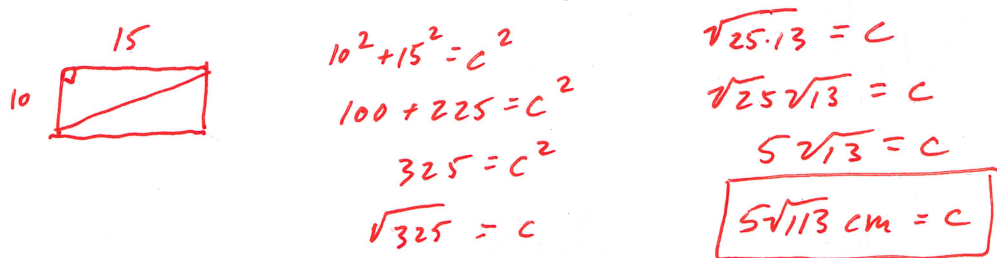 15
10
10² + 15² = c²
100 + 225 = c²
325 = c²
√325 = c
√25·13 = c
√25 √13 = c
5√13 = c
5√113 cm = c